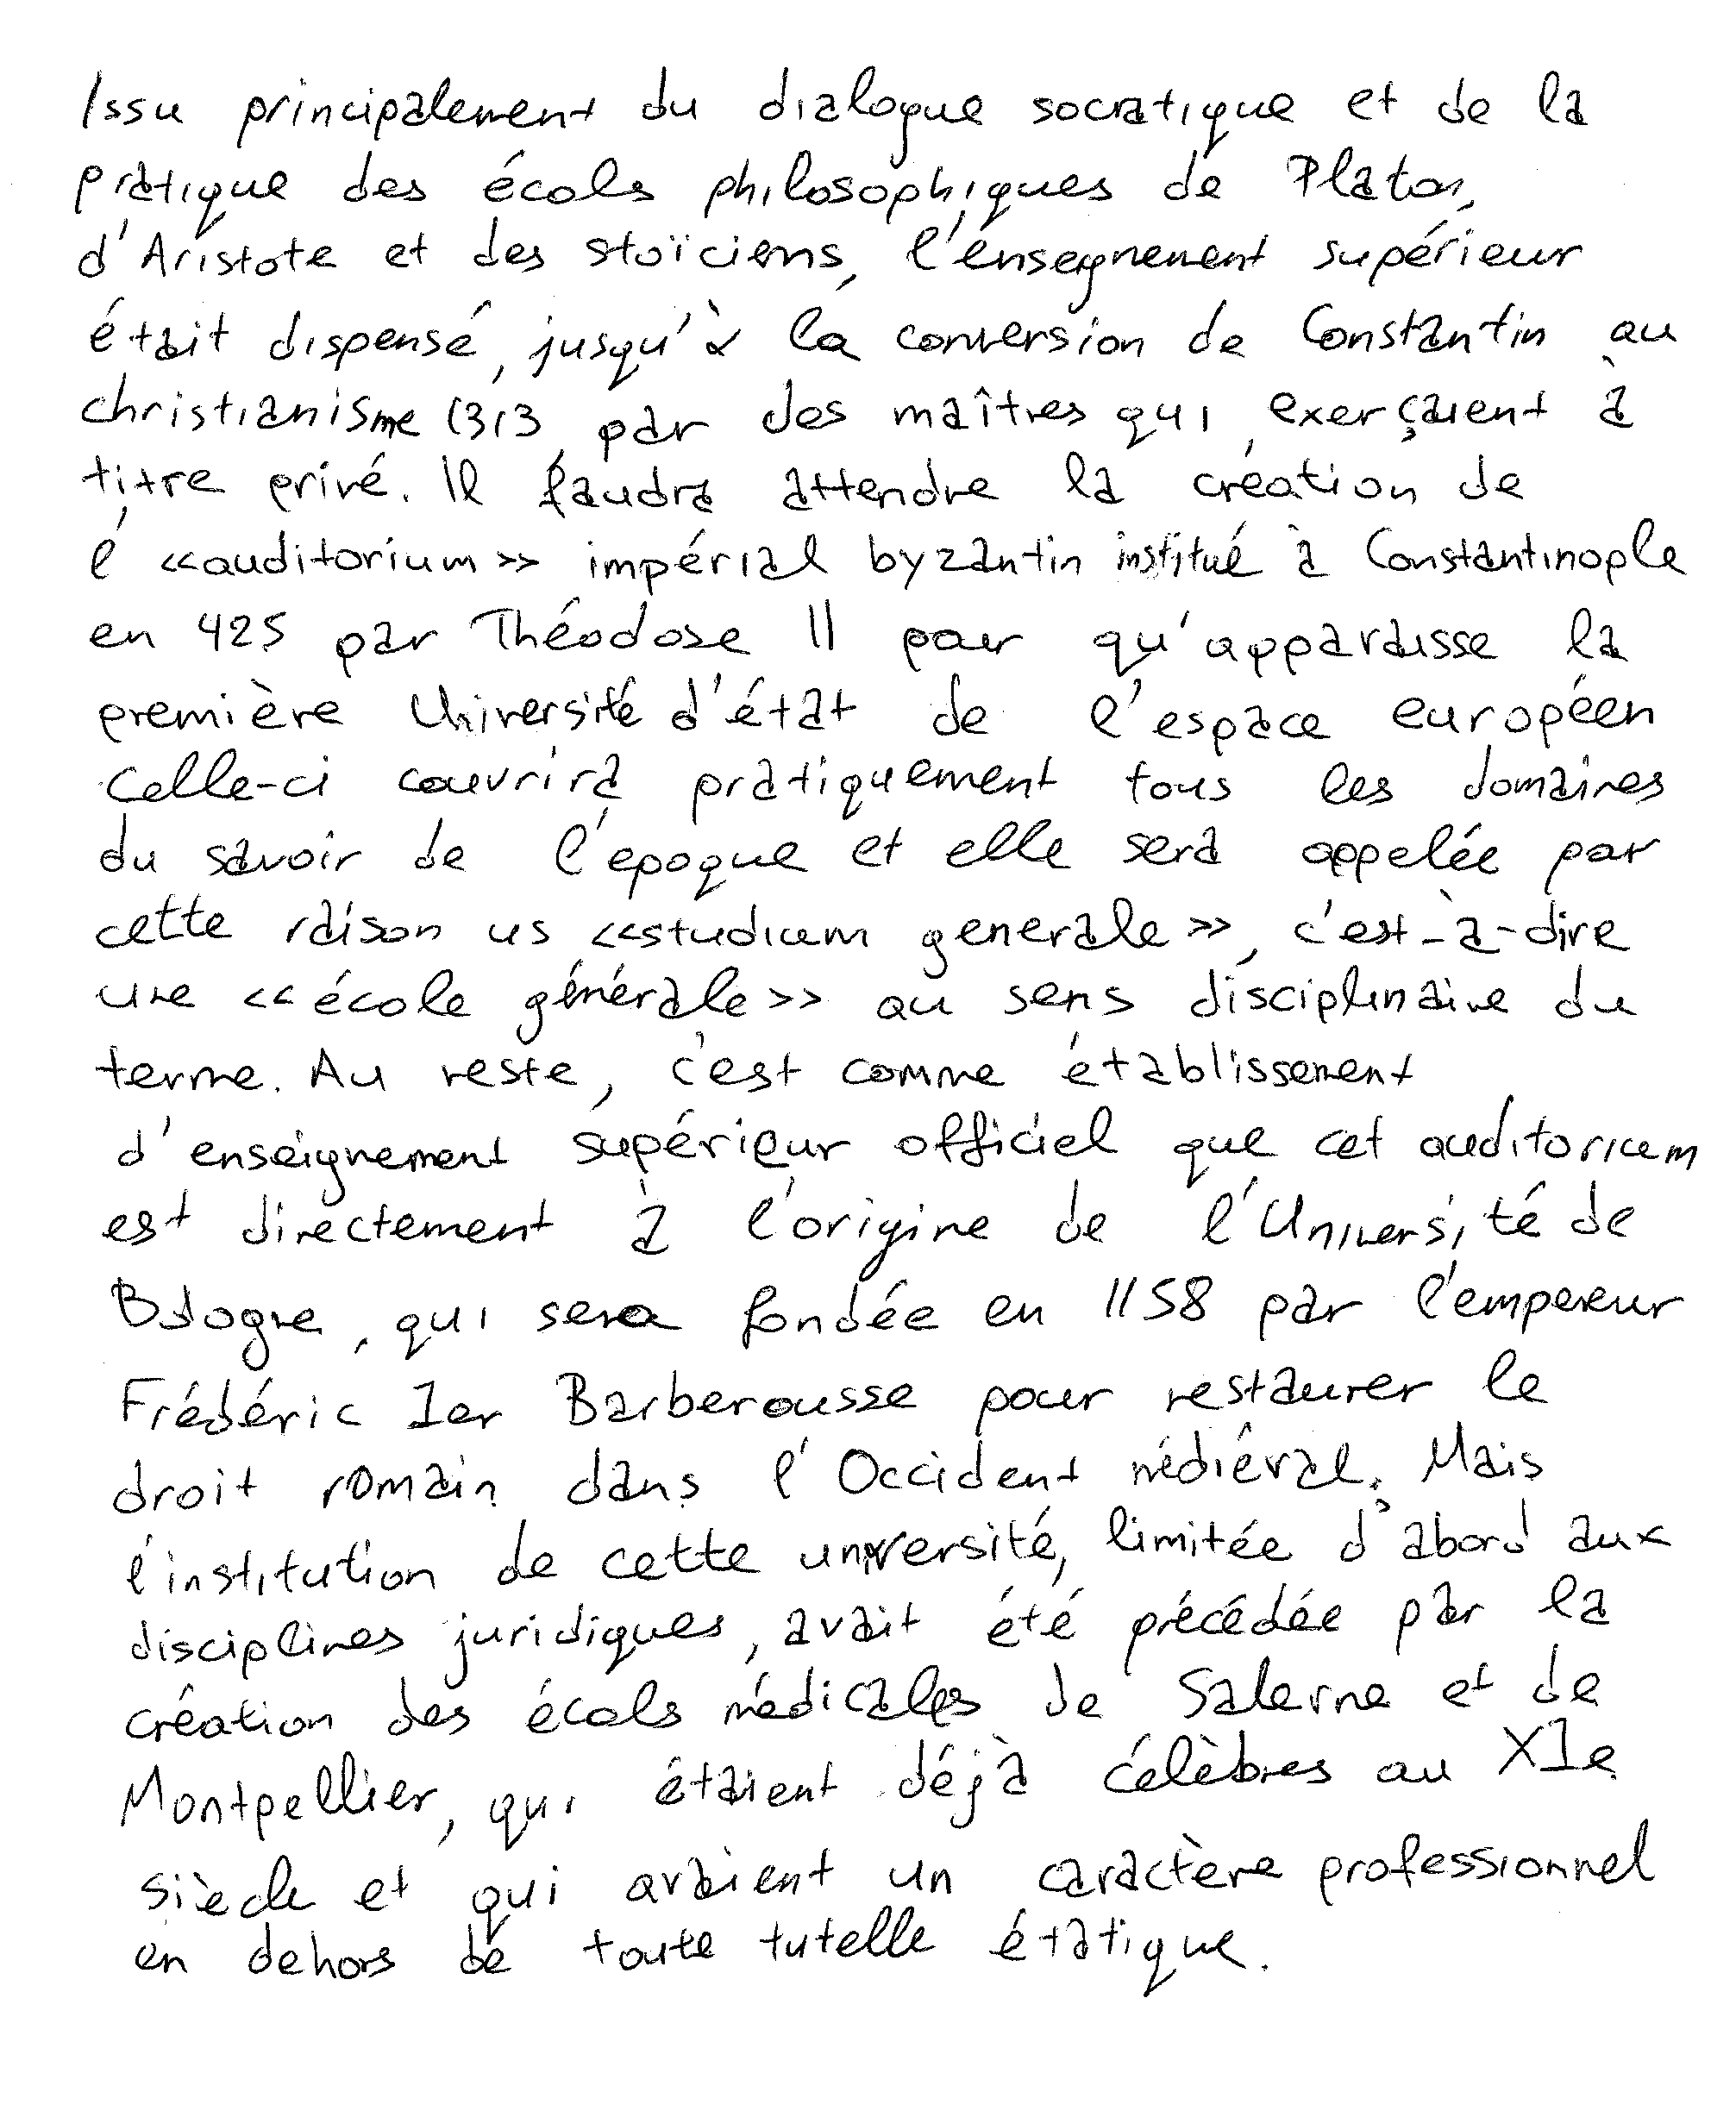 Issu principalement du dialogue socratique et de la
pratique des écols philosophiques de Platon,
d'Aristote et des stoïciens, l'énseignement supérieur
était dispensé, jusqu'à la conversion de Constantin au
christianisme (313, par des maîtres qui exerçaient à
titre privé. Il faudra attendre la création de
l' «auditorium» impérial byzantin institué à Constantinople
en 425 par Théodose II pour qu'apparaisse la
première Université d'état de l'espace européen
Celle-ci couvrira pratiquement tous les domaines
du savoir de l'epoque et elle sera appelée par
cette raison us «studium generale», c'est-à-dire
une «école générale» au sens disciplinaire du
terme. Au reste, c'est comme établissement
d'enseignement supérieur officiel que cet auditorium
est directement à l'origine de l'Université de
Bologne, qui sera fondée en 1158 par l'empereur
Frédéric Ier Barberousse pour restaurer le
droit romain dans l'Occident médiéval. Mais
l'institution de cette université, limitée d'abord aux
disciplines juridiques, avait été précédée par la
création des écols médicales de Salerne et de
Montpellier, qui étaient déjà célèbres au XIe
siècle et qui avaient un caractère professionnel
en dehors de toute tutelle étatique.